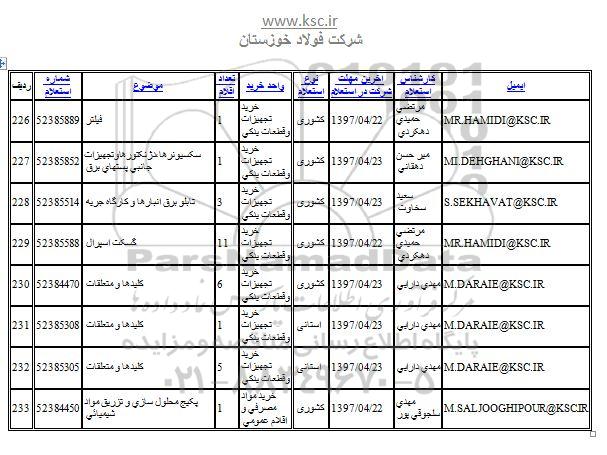 www.ksc.ir
شرکت فولاد خوزستان
رديف شماره استعلام موضوع تعداد اقلام واحد خريد نوع استعلام آخرين مهلت شرکت در استعلام کارشناس استعلام ايميل
226 52385889 فيلتر 1 خريد تجهيزات وقطعات يدکي کشوری 1397/04/22 مرتضي حميدي دهکردي MR.HAMIDI@KSC.IR
227 52385852 سکسيونرها،دژنکتورهاوتجهيزات جانبي پستهاي برق 1 خريد تجهيزات وقطعات يدکي کشوری 1397/04/23 مير حسن دهقاني MI.DEHGHANI@KSC.IR
228 52385514 تابلو برق انبارها و کارگاه جربه 3 خريد تجهيزات وقطعات يدکي کشوری 1397/04/23 سعيد سخاوت S.SEKHAVAT@KSC.IR
229 52385588 گسکت اسپرال 11 خريد تجهيزات وقطعات يدکي کشوری 1397/04/22 مرتضي حميدي دهکردي MR.HAMIDI@KSC.IR
230 52384470 کليدها و متعلقات 6 خريد تجهيزات وقطعات يدکي کشوری 1397/04/23 مهدي دارايي M.DARAIE@KSC.IR
231 52385308 کليدها و متعلقات 1 خريد تجهيزات وقطعات يدکي استانی 1397/04/23 مهدي دارايي M.DARAIE@KSC.IR
232 52385305 کليدها و متعلقات 5 خريد تجهيزات وقطعات يدکي استانی 1397/04/23 مهدي دارايي M.DARAIE@KSC.IR
233 52384450 پکيج محلول سازي و تزريق مواد شيميائي 1 خريد مواد مصرفي و اقلام عمومي کشوری 1397/04/22 مهدي سلجوقي پور M.SALJOOGHIPOUR@KSC.IR
ParsNamadData
پایگاه اطلاع رسانی مناقصه و مزایده
۰۲۱-۸۸۳۴۹۶۷۰-۵